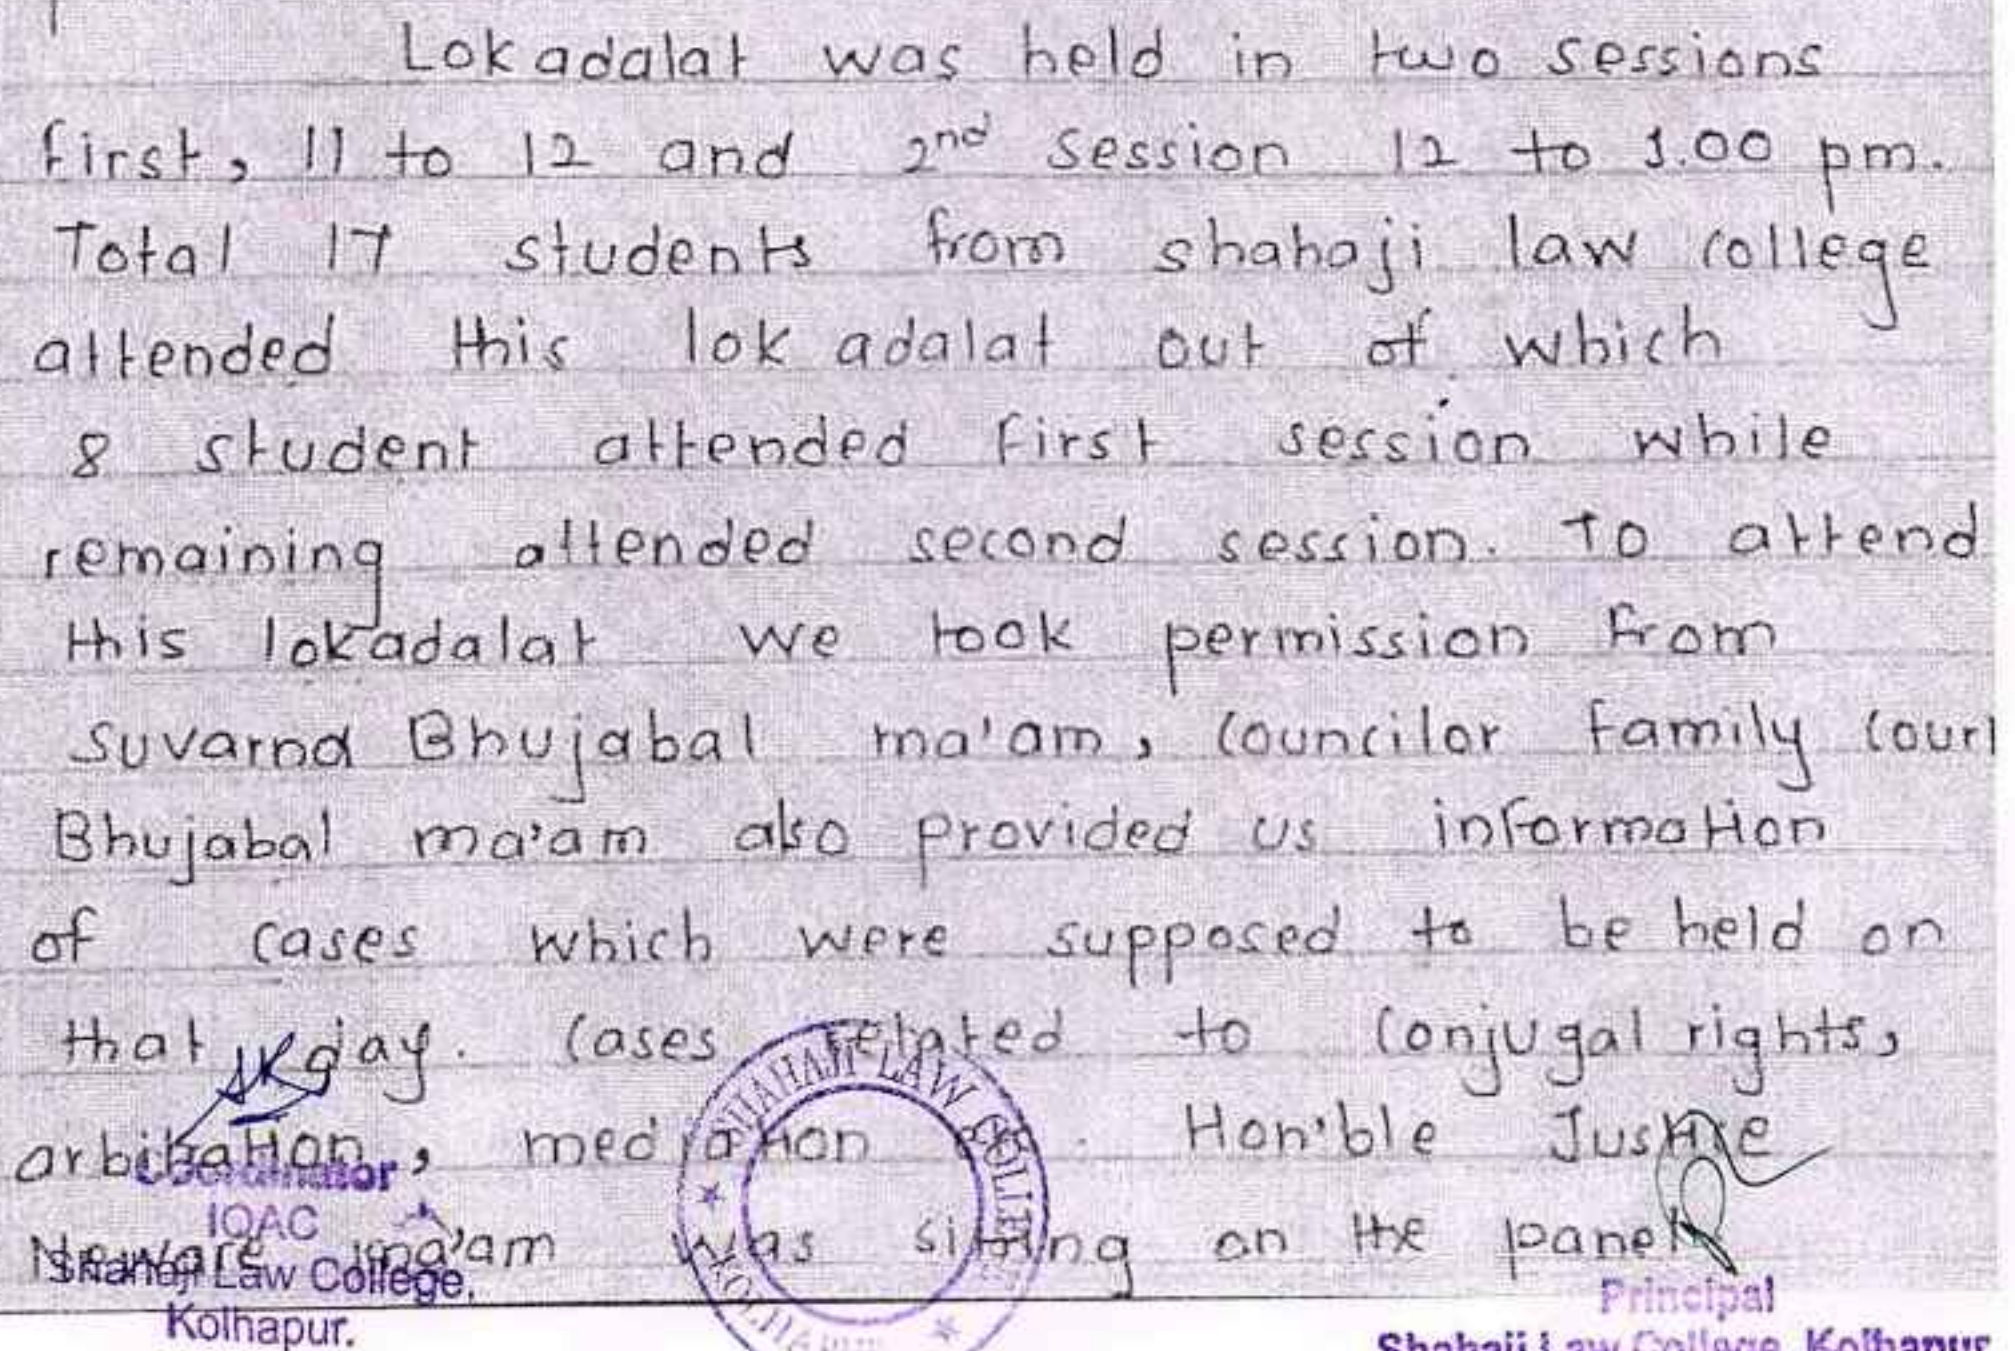 Lok adalat was held in two sessions
first, 11 to 12 and 2nd session 12 to 1.00 pm.
Total 17 students from shahaji law college
attended this lok adalat out of which
8 student attended first session while
remaining attended second session. To attend
this lokadalat we took permission from
suvarna Bhujabal ma'am, councilor family court
Bhujabal ma'am also provided us information
of cases which were supposed to be held on
that day. Cases related to Conjugal rights,
arbitration, mediation. Hon'ble Justice
ma'am was sitting on the panel
Coordinator
IQAC
Shahaji Law College,
Kolhapur.
SHAHAJI LAW COLLEGE
KOLHAPUR
Principal
Shahaji Law College, Kolhapur